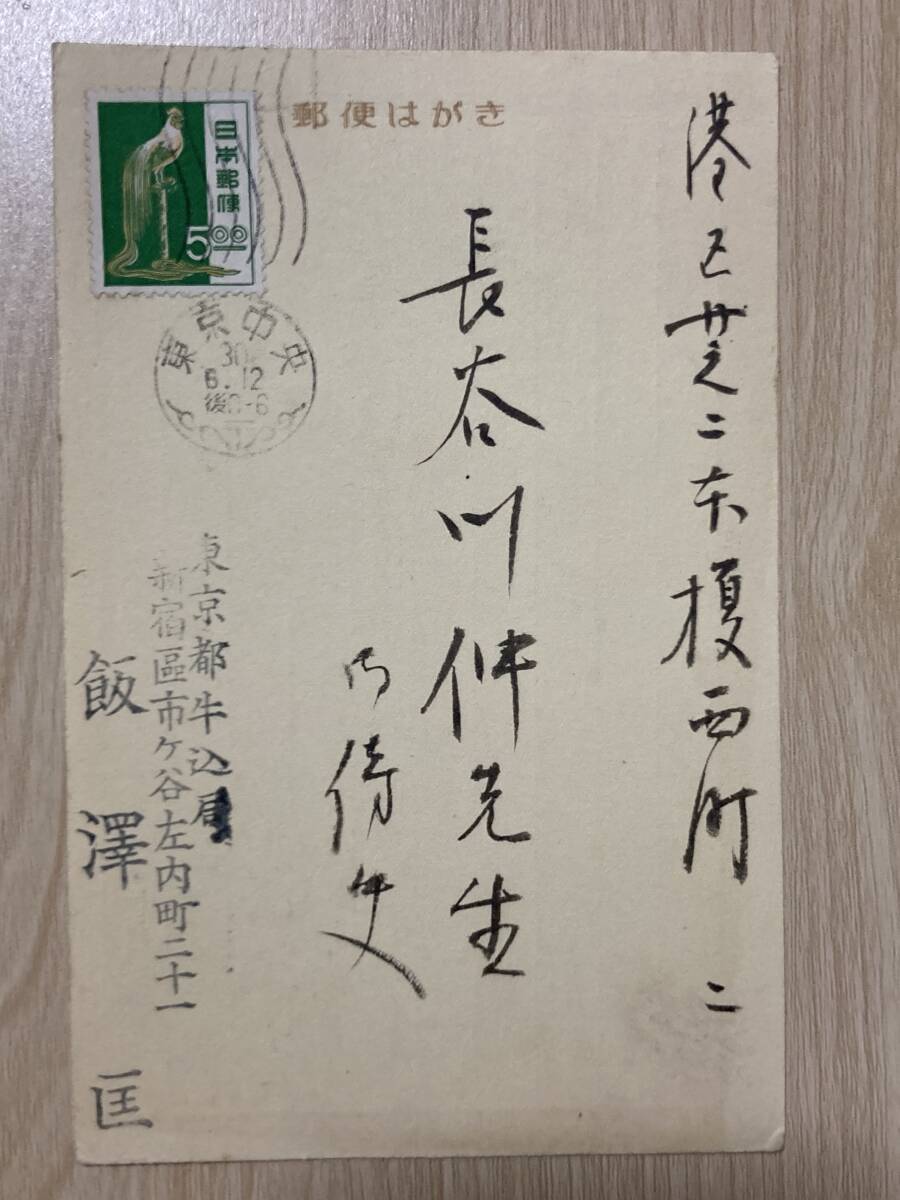 郵便はがき
日本郵便
5.00
東京中央
30
6.12
後0-6
港区芝二本榎西町 二
長谷川伸先生
御侍史
東京都牛込局
新宿區市ヶ谷左内町二十一
飯澤匡